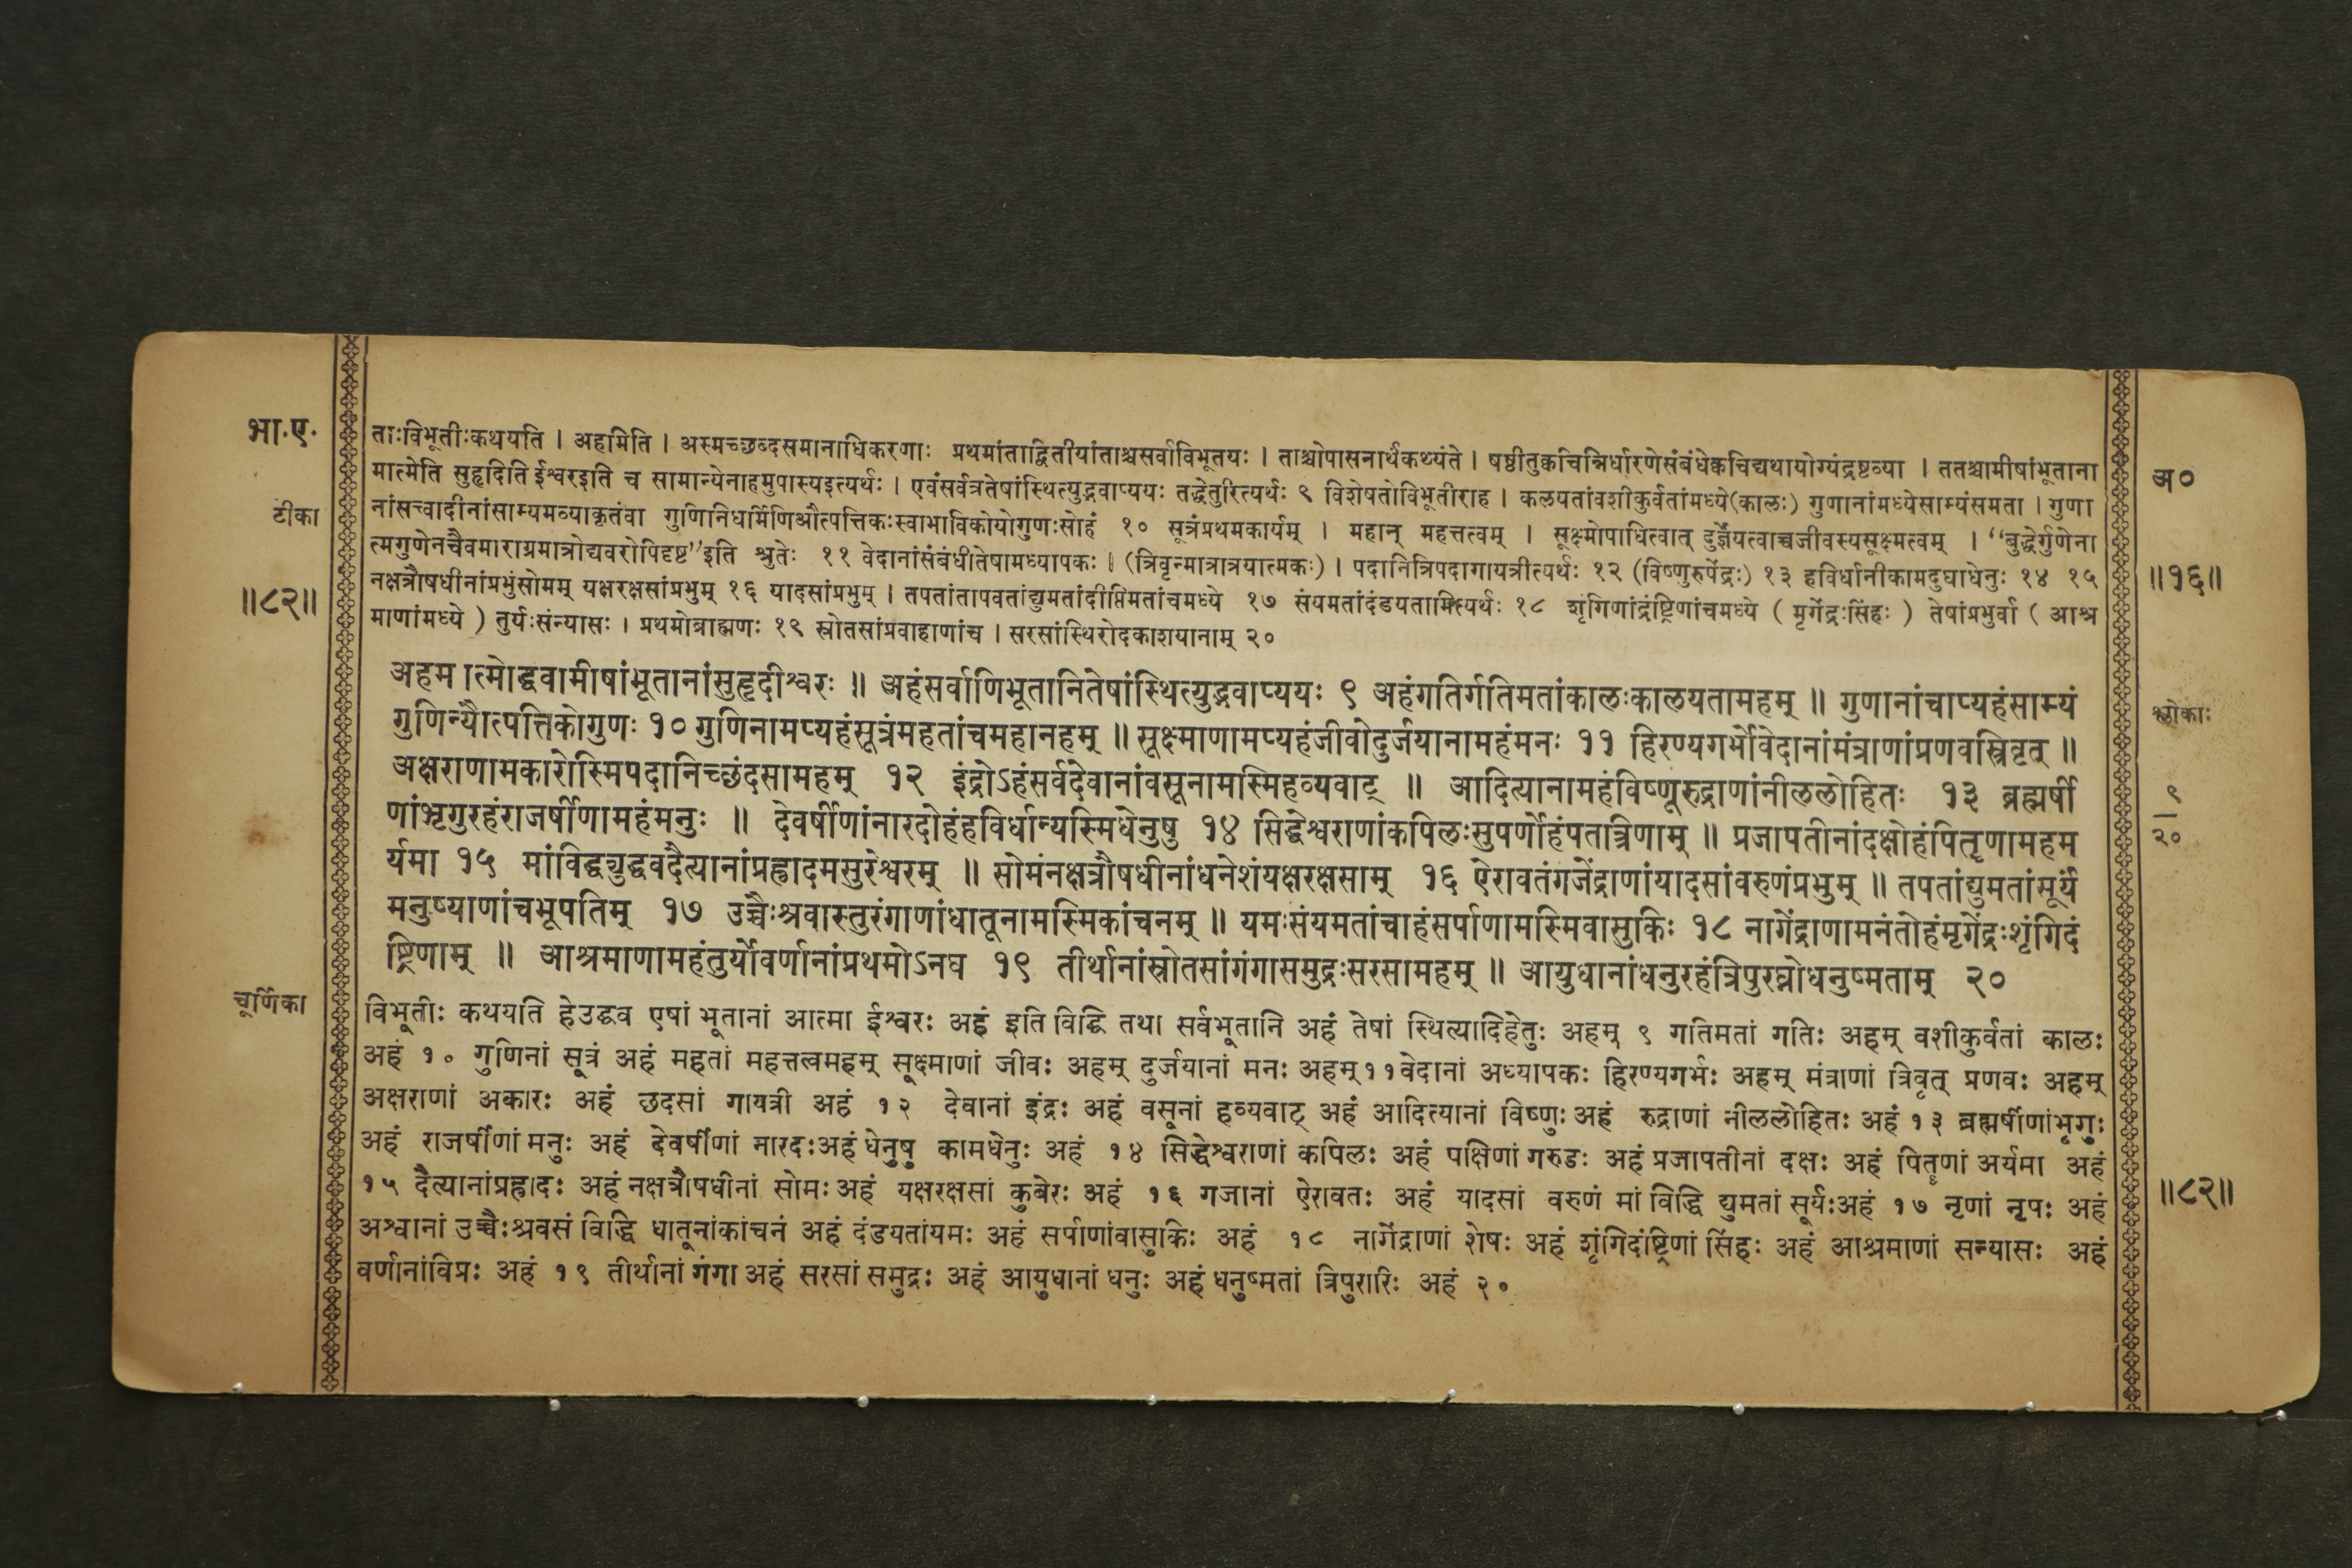 भा.ए.
ताःविभूतीःकथयति । अहमिति । अस्मच्छब्दसमानाधिकरणाः प्रथमांताद्वितीयांताश्चसर्वाविभूतयः । ताश्चोपासनार्थंकथ्यंते । षष्ठीतुक्वचिन्निर्धारणेसंबंधेक्वचिद्यथायोग्यंद्रष्टव्या । ततश्चामीषांभूताना
अ०
मात्मेति सुहृदिति ईश्वरइति च सामान्येनाहमुपास्यइत्यर्थः । एवंसर्वत्रतेषांस्थित्युद्भवाप्ययः तद्धेतुरित्यर्थः ९ विशेषतोविभूतीराह । कलयतांवशीकुर्वतांमध्ये(कालः) गुणानांमध्येसाम्यंसमता । गुणा
टीका
नांसत्त्वादीनांसाम्यमव्याकृतंवा गुणिनिधर्मिणिऔत्पत्तिकःस्वाभाविकोयोगुणःसोहं १० सूत्रंप्रथमकार्यम् । महान् महत्तत्वम् । सूक्ष्मोपाधित्वात् दुर्ज्ञेयत्वाच्चजीवस्यसूक्ष्मत्वम् । “बुद्धेर्गुणेना
त्मगुणेनचैवमाराग्रमात्रोह्यवरोपिदृष्ट”इति श्रुतेः ११ वेदानांसंबंधीतेषामध्यापकः । (त्रिवृन्मात्रात्रयात्मकः) । पदानित्रिपदागायत्रीत्यर्थः १२ (विष्णुरुपेंद्रः) १३ हविर्धानीकामदुघाधेनुः १४ १५
॥१६॥
॥८२॥
नक्षत्रौषधीनांप्रभुंसोमम् यक्षरक्षसांप्रभुम् १६ यादसांप्रभुम् । तपतांतापवतांद्युमतांदीप्तिमतांचमध्ये १७ संयमतांदंडयतामित्यर्थः १८ शृंगिणांद्रंष्ट्रिणांचमध्ये ( मृगेंद्रःसिंहः ) तेषांप्रभुर्वा ( आश्र
माणांमध्ये ) तुर्यःसंन्यासः । प्रथमोब्राह्मणः १९ स्रोतसांप्रवाहाणांच । सरसांस्थिरोदकाशयानाम् २०
अहमात्मोद्धवामीषांभूतानांसुहृदीश्वरः ॥ अहंसर्वाणिभूतानितेषांस्थित्युद्भवाप्ययः ९ अहंगतिर्गतिमतांकालःकालयतामहम् ॥ गुणानांचाप्यहंसाम्यं
श्लोकाः
गुणिन्यौत्पत्तिकोगुणः १० गुणिनामप्यहंसूत्रंमहतांचमहानहम् ॥ सूक्ष्माणामप्यहंजीवोदुर्जयानामहंमनः ११ हिरण्यगर्भोवेदानांमंत्राणांप्रणवस्त्रिवृत् ॥
अक्षराणामकारोस्मिपदानिच्छंदसामहम् १२ इंद्रोऽहंसर्वदेवानांवसूनामस्मिहव्यवाट् ॥ आदित्यानामहंविष्णूरुद्राणांनीललोहितः १३ ब्रह्मर्षी
९
२०
णांभृगुरहंराजर्षीणामहंमनुः ॥ देवर्षीणांनारदोहंहविर्धान्यस्मिधेनुषु १४ सिद्धेश्वराणांकपिलःसुपर्णोहंपतत्रिणाम् ॥ प्रजापतीनांदक्षोहंपितॄणामहम
र्यमा १५ मांविद्ध्युद्धवदैत्यानांप्रह्लादमसुरेश्वरम् ॥ सोमंनक्षत्रौषधीनांधनेशंयक्षरक्षसाम् १६ ऐरावतंगजेंद्राणांयादसांवरुणंप्रभुम् ॥ तपतांद्युमतांसूर्यं
मनुष्याणांचभूपतिम् १७ उच्चैःश्रवास्तुरंगाणांधातूनामस्मिकांचनम् ॥ यमःसंयमतांचाहंसर्पाणामस्मिवासुकिः १८ नागेंद्राणामनंतोहंमृगेंद्रःशृंगिदं
ष्ट्रिणाम् ॥ आश्रमाणामहंतुर्योवर्णानांप्रथमोऽनघ १९ तीर्थानांस्रोतसांगंगासमुद्रःसरसामहम् ॥ आयुधानांधनुरहंत्रिपुरघ्नोधनुष्मताम् २०
चूर्णिका
विभूतीः कथयति हेउद्धव एषां भूतानां आत्मा ईश्वरः अहं इति विद्धि तथा सर्वभूतानि अहं तेषां स्थित्यादिहेतुः अहम् ९ गतिमतां गतिः अहम् वशीकुर्वतां कालः
अहं १० गुणिनां सूत्रं अहं महतां महत्तत्वमहम् सूक्ष्माणां जीवः अहम् दुर्जयानां मनः अहम्११वेदानां अध्यापकः हिरण्यगर्भः अहम् मंत्राणां त्रिवृत् प्रणवः अहम्
अक्षराणां अकारः अहं छदसां गायत्री अहं १२ देवानां इंद्रः अहं वसूनां हव्यवाट् अहं आदित्यानां विष्णुः अहं रुद्राणां नीललोहितः अहं १३ ब्रह्मर्षीणांभृगुः
अहं राजर्षीणां मनुः अहं देवर्षीणां नारदःअहं धेनुषु कामधेनुः अहं १४ सिद्धेश्वराणां कपिलः अहं पक्षिणां गरुडः अहं प्रजापतीनां दक्षः अहं पितॄणां अर्यमा अहं
१५ दैत्यानांप्रह्लादः अहं नक्षत्रौषधीनां सोमः अहं यक्षरक्षसां कुबेरः अहं १६ गजानां ऐरावतः अहं यादसां वरुणं मां विद्धि द्युमतां सूर्यःअहं १७ नृणां नृपः अहं
॥८२॥
अश्वानां उच्चैःश्रवसं विद्धि धातूनांकांचनं अहं दंडयतांयमः अहं सर्पाणांवासुकिः अहं १८ नागेंद्राणां शेषः अहं शृंगिदंष्ट्रिणां सिंहः अहं आश्रमाणां सन्यासः अहं
वर्णानांविप्रः अहं १९ तीर्थानां गंगा अहं सरसां समुद्रः अहं आयुधानां धनुः अहं धनुष्मतां त्रिपुरारिः अहं २०